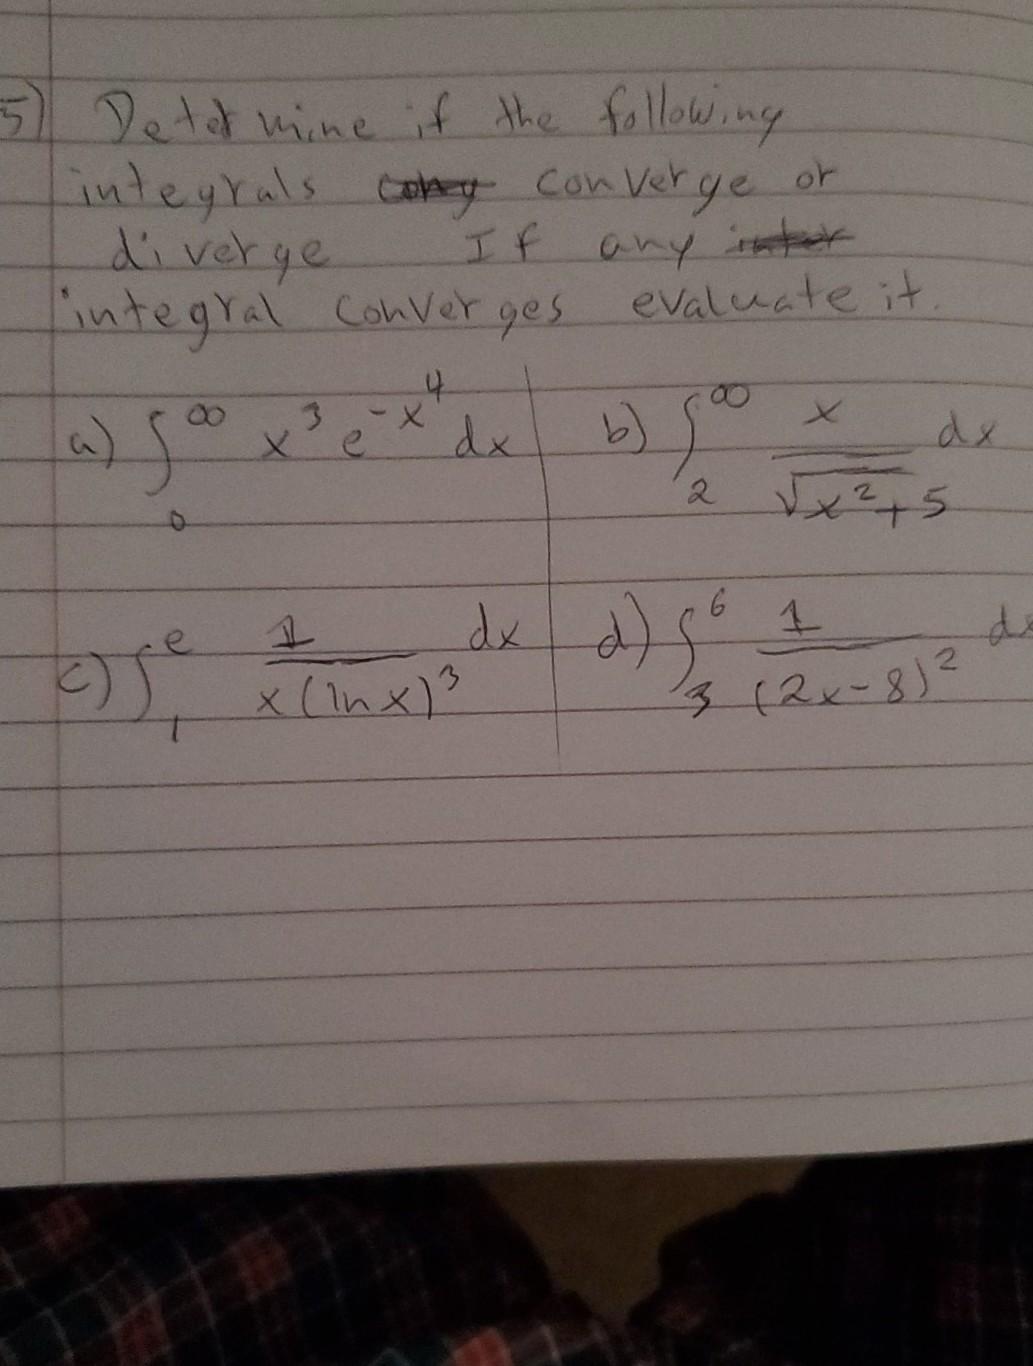 5) Determine if the following
integrals converge or
diverge If any
integral converges evaluate it.
a) ∫₀^∞ x³ e^(-x⁴) dx b) ∫₂^∞ x / √(x²+5) dx
c) ∫₁^e 1 / (x(ln x)³) dx d) ∫₃^6 1 / (2x-8)² dx